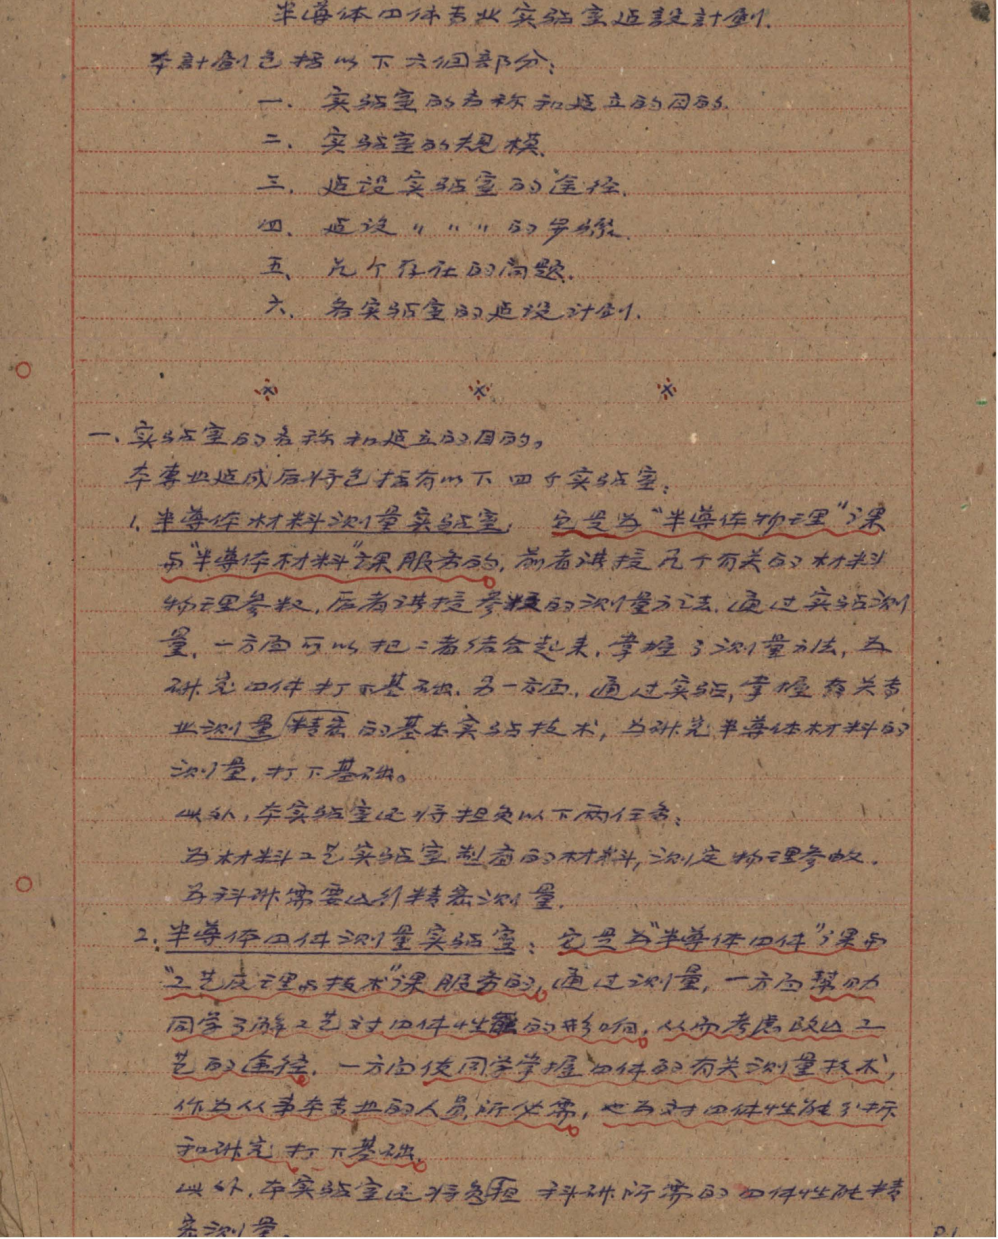 半導体四体专业实验室延設計劃.
本計劃包括以下六個部分:
一. 实验室的名称和延立的目的.
二. 实验室的规模.
三. 延设实验室的途径.
四. 延设 〃 〃 〃 的步骤.
五. 几个存在的问题.
六. 各实验室的延设计划.
※ ※ ※
一. 实验室的名称和延立的目的。
本專业延成后将包括有以下四个实验室:
1. 半導体材料測量实验室: 它是为“半導体物理”课
与“半導体材料”课服务的, 前者講授几个有关的材料
物理参数, 后者講授参数的测量方法. 通过实验测
量, 一方面可以把二者结合起来, 掌握了测量方法, 为
研究四体打下基础. 另一方面, 通过实验, 掌握有关专
业测量精密的基本实验技术, 为研究半導体材料的
测量, 打下基础。
此外, 本实验室还将担负以下两任务:
为材料工艺实验室製备的材料, 测定物理参数.
为科研需要以外精密测量.
2. 半導体四体测量实验室: 它是为“半導体四体”课与
“工艺反理与技术”课服务的, 通过测量, 一方面幫助
同学了解工艺对四体性能的影响, 从而考慮改出工
艺的途径. 一方面使同学掌握四体的有关测量技术,
作为从事本专业的人员所必需, 也为对四体性能分析
和研究打下基础.
此外, 本实验室还将负担 科研所需的四体性能精
密测量.
P.1